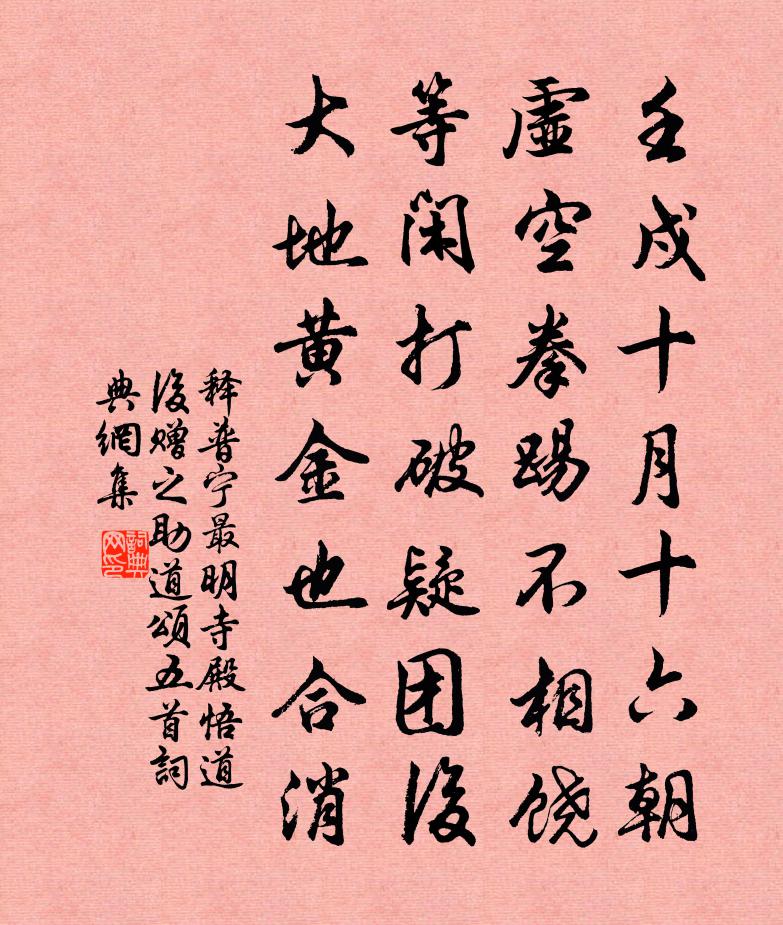 壬戌十月十六朝
虛空拳踢不相饶
等閑打破疑团後
大地黄金也合消
释普宁最明寺殿悟道
後赠之助道頌五首詞
典網集
詞典网印